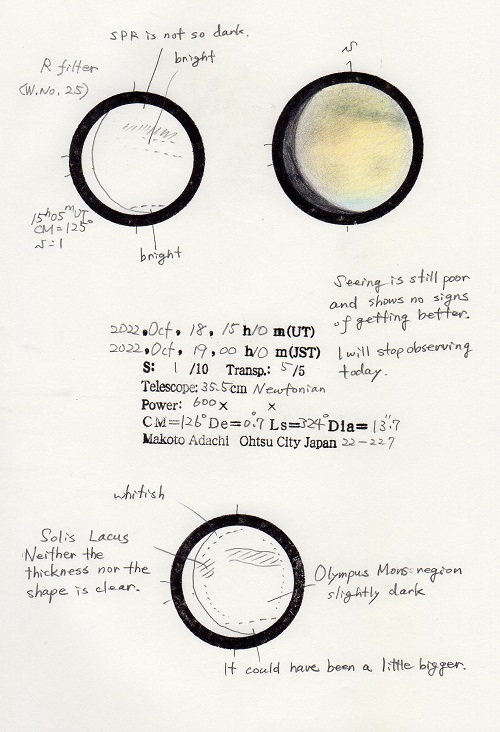 SPR is not so dark.
bright
R filter
(W.No. 25)
15h05mUT
CM=125°
S:1
bright
S
Seeing is still poor
and shows no signs
of getting better.
I will stop observing
today.
2022, Oct, 18, 15 h10 m(UT)
2022, Oct, 19, 00 h10 m(JST)
S: 1 /10 Transp.: 5/5
Telescope: 35.5cm Newtonian
Power: 600 × ×
CM=126° De=0.7° Ls=324° Dia=13".7
Makoto Adachi Ohtsu City Japan 22-227
whitish
Solis Lacus
Neither the
thickness nor the
shape is clear.
Olympus Mons region
slightly dark
It could have been a little bigger.